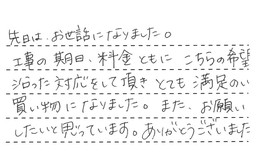 先日は、お世話になりました。
工事の期日、料金ともに こちらの希望
沿った対応をして頂き とても 満足のい
買い物になりました。また、お願い
したいと思っています。ありがとうございました